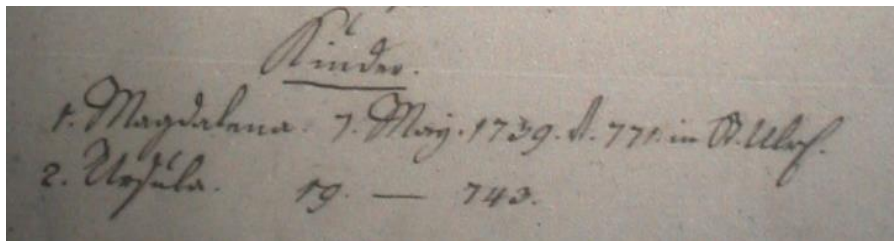 Kinder.
1. Magdalena. 7. May. 1739. st. 771. in St. Ulr.
2. Ursula. 19. — 743.